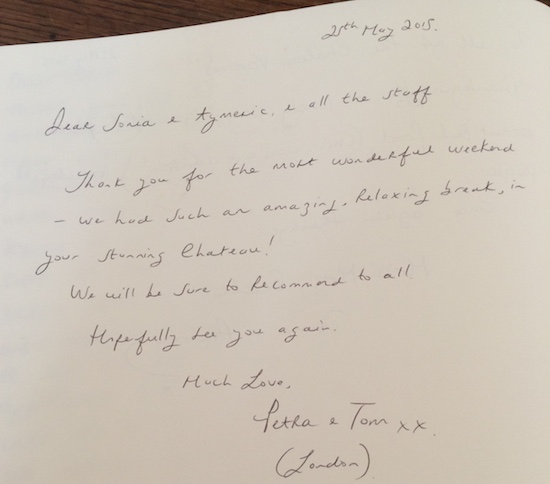 25th May 2015.
Dear Sonia & Aymeric, & all the staff
Thank you for the most wonderful weekend
- we had such an amazing, relaxing break, in
your stunning Chateau!
We will be sure to recommend to all
Hopefully see you again.
Much Love,
Petra & Tom xx.
(London)